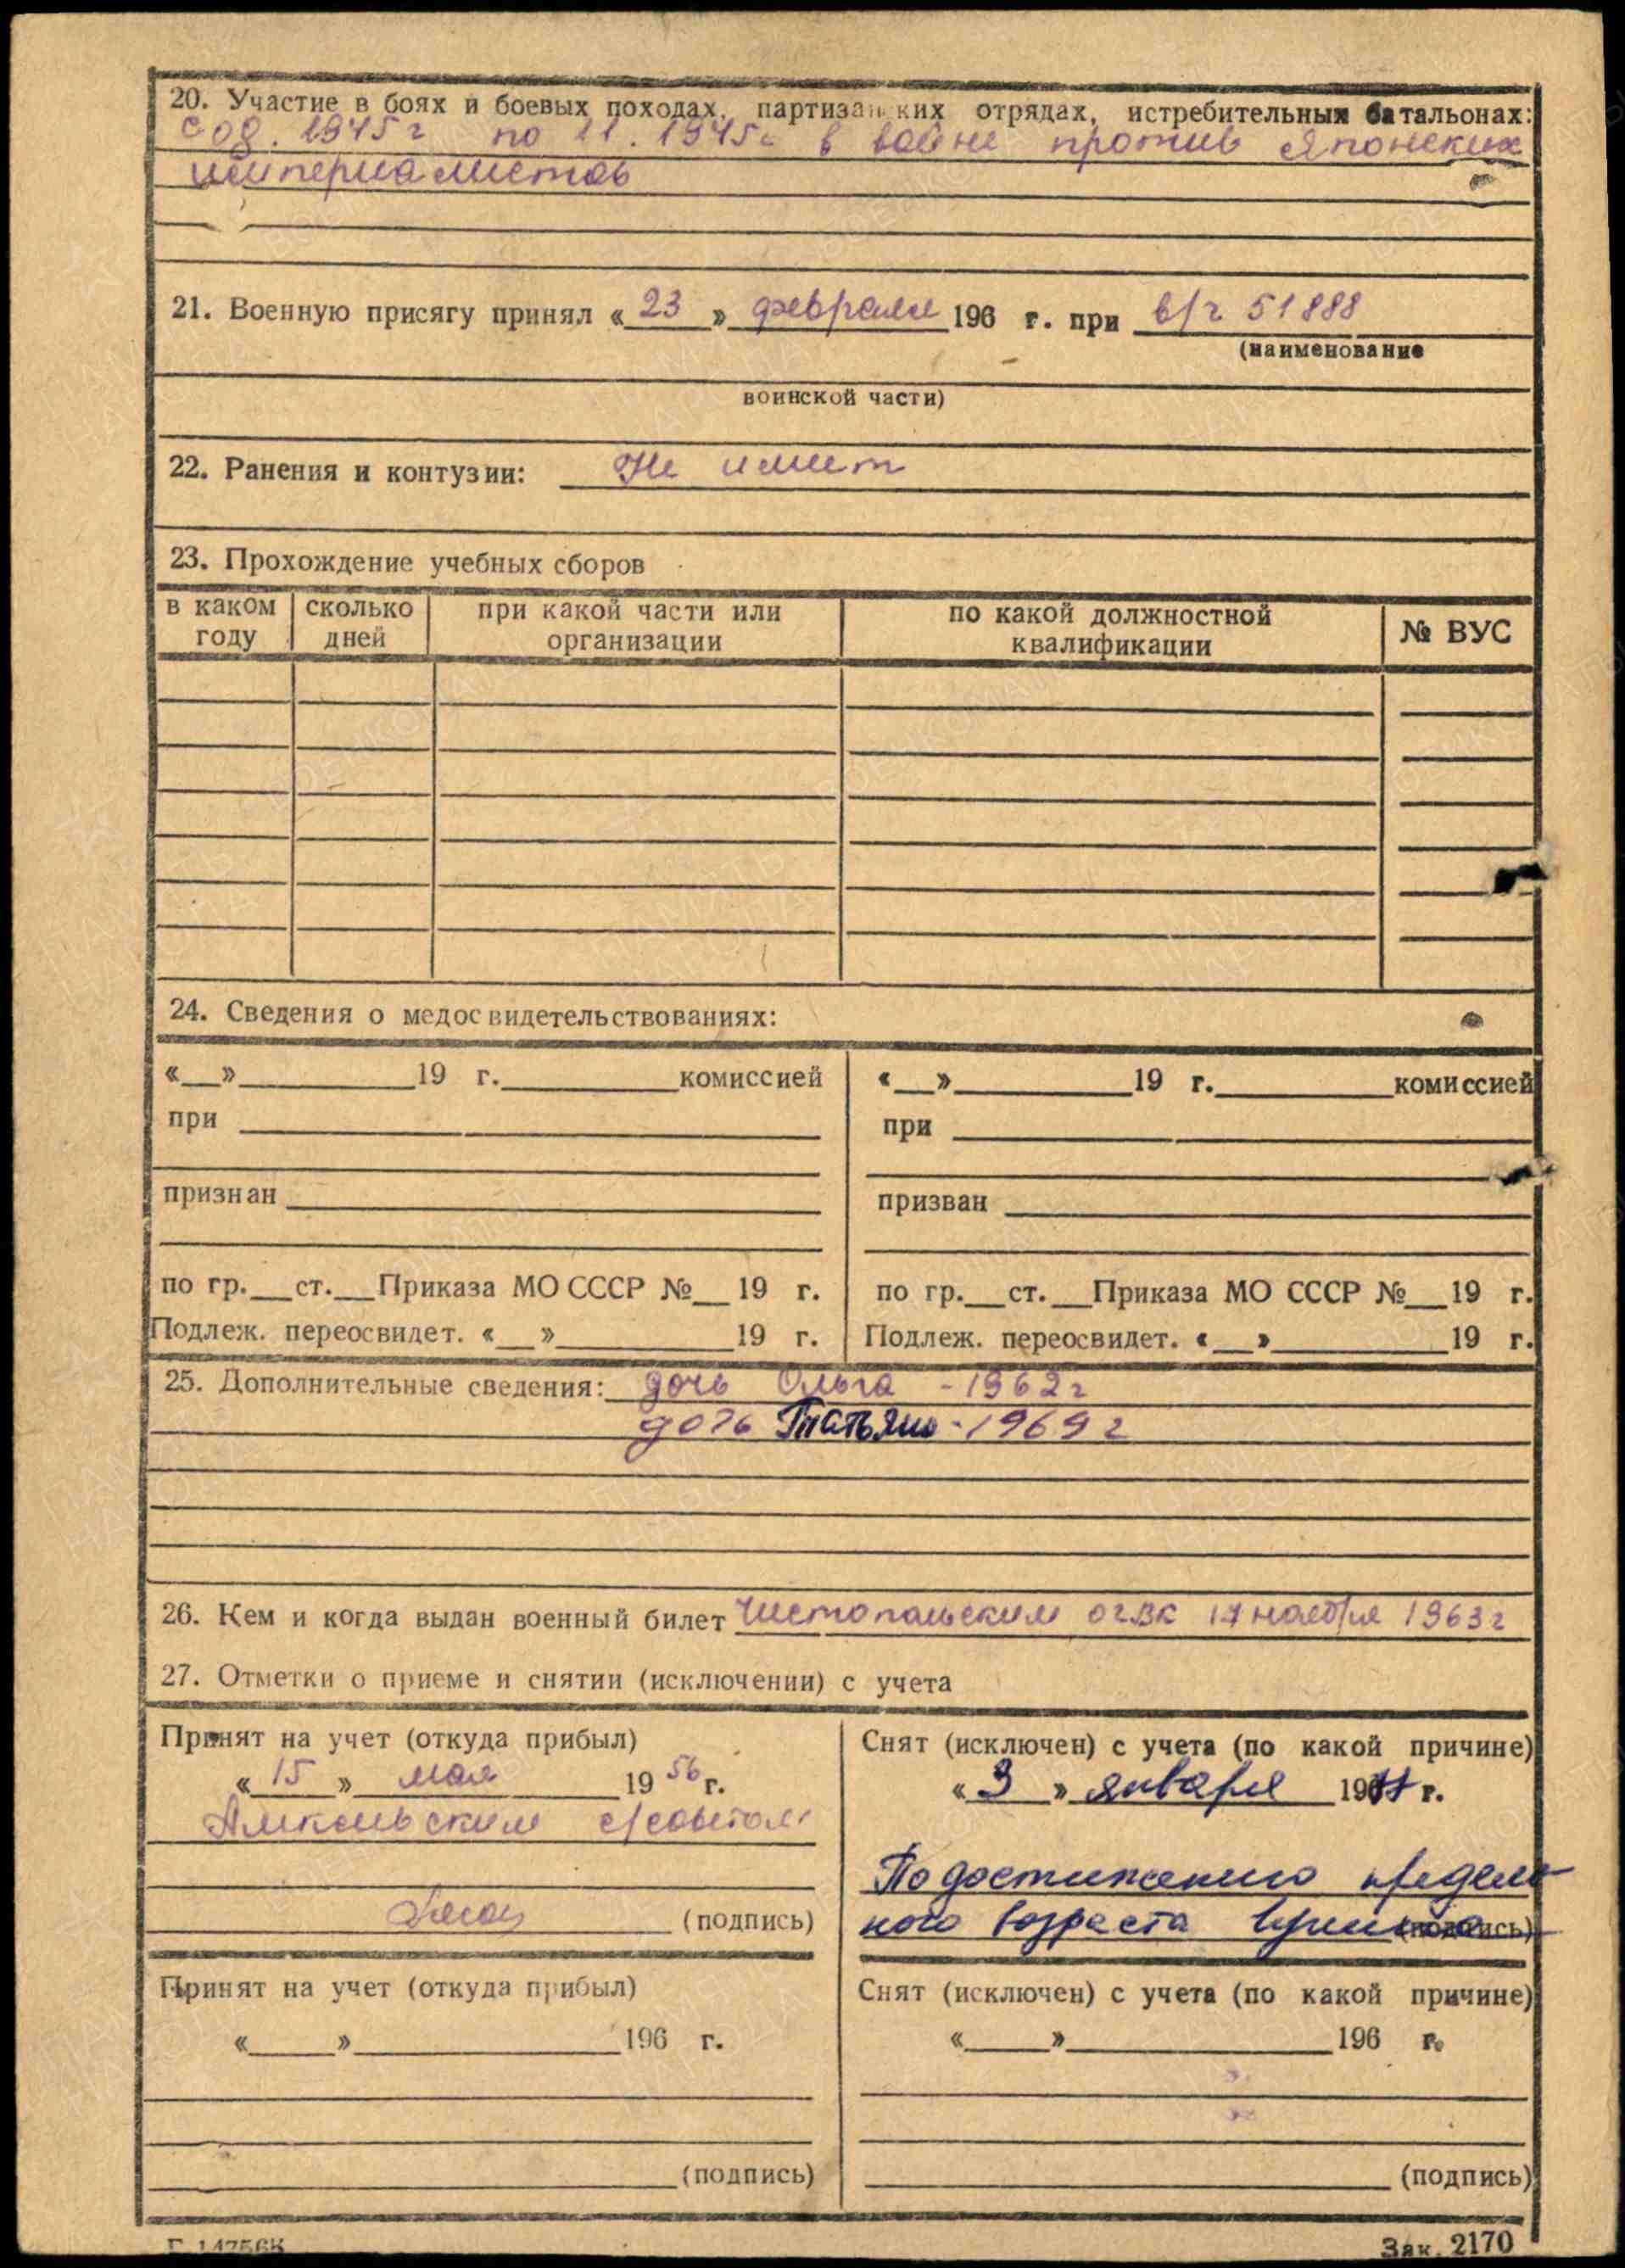 20. Участие в боях и боевых походах, партизанских отрядах, истребительных батальонах:
с 08. 1945 г по 11. 1945 г в войне против Японских
империалистов
21. Военную присягу принял « 23 » февраля 196 г. при в/ч 51888
(наименование
воинской части)
22. Ранения и контузии: Не имеет
23. Прохождение учебных сборов
в каком году сколько дней при какой части или организации по какой должностной квалификации № ВУС
24. Сведения о медосвидетельствованиях:
«__»________19 г.________комиссией «__»________19 г.________комиссией
при при
признан призван
по гр.__ст.__Приказа МО СССР №__19 г. по гр.__ст.__Приказа МО СССР №__19 г.
Подлеж. переосвидет. «__»________19 г. Подлеж. переосвидет. «__»________19 г.
25. Дополнительные сведения: дочь Ольга - 1962 г
дочь Татьяна - 1969 г
26. Кем и когда выдан военный билет Чистопольским ОГВК 17 ноября 1963 г
27. Отметки о приеме и снятии (исключении) с учета
Принят на учет (откуда прибыл) Снят (исключен) с учета (по какой причине)
« 15 » мая 19 56 г. « 3 » января 19 г.
с/советом
По достижению предель
ного возраста
(подпись) (подпись)
Принят на учет (откуда прибыл) Снят (исключен) с учета (по какой причине)
«__»________196 г. «__»________196 г.
(подпись) (подпись)
Г-14756К Зак. 2170